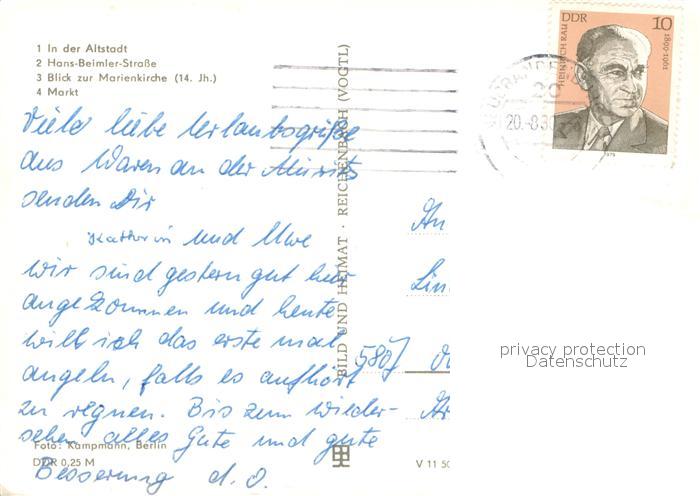 1 In der Altstadt
2 Hans-Beimler-Straße
3 Blick zur Marienkirche (14. Jh.)
4 Markt
Viele liebe Urlaubsgrüße
aus Waren an der Müritz
senden Dir
Kathrin und Uwe
wir sind gestern gut hier
angekommen und heute
will ich das erste mal
angeln, falls es aufhört
zu regnen. Bis zum wieder-
sehen alles Gute und gute
Besserung d. O.
Foto: Kampmann, Berlin
DDR 0,25 M
BILD UND HEIMAT · REICHENBACH (VOGTL)
V 11 50
DDR
10
HEINRICH RAU
1899-1961
1979
20.-8.80
An
Lin
5807
privacy protection
Datenschutz